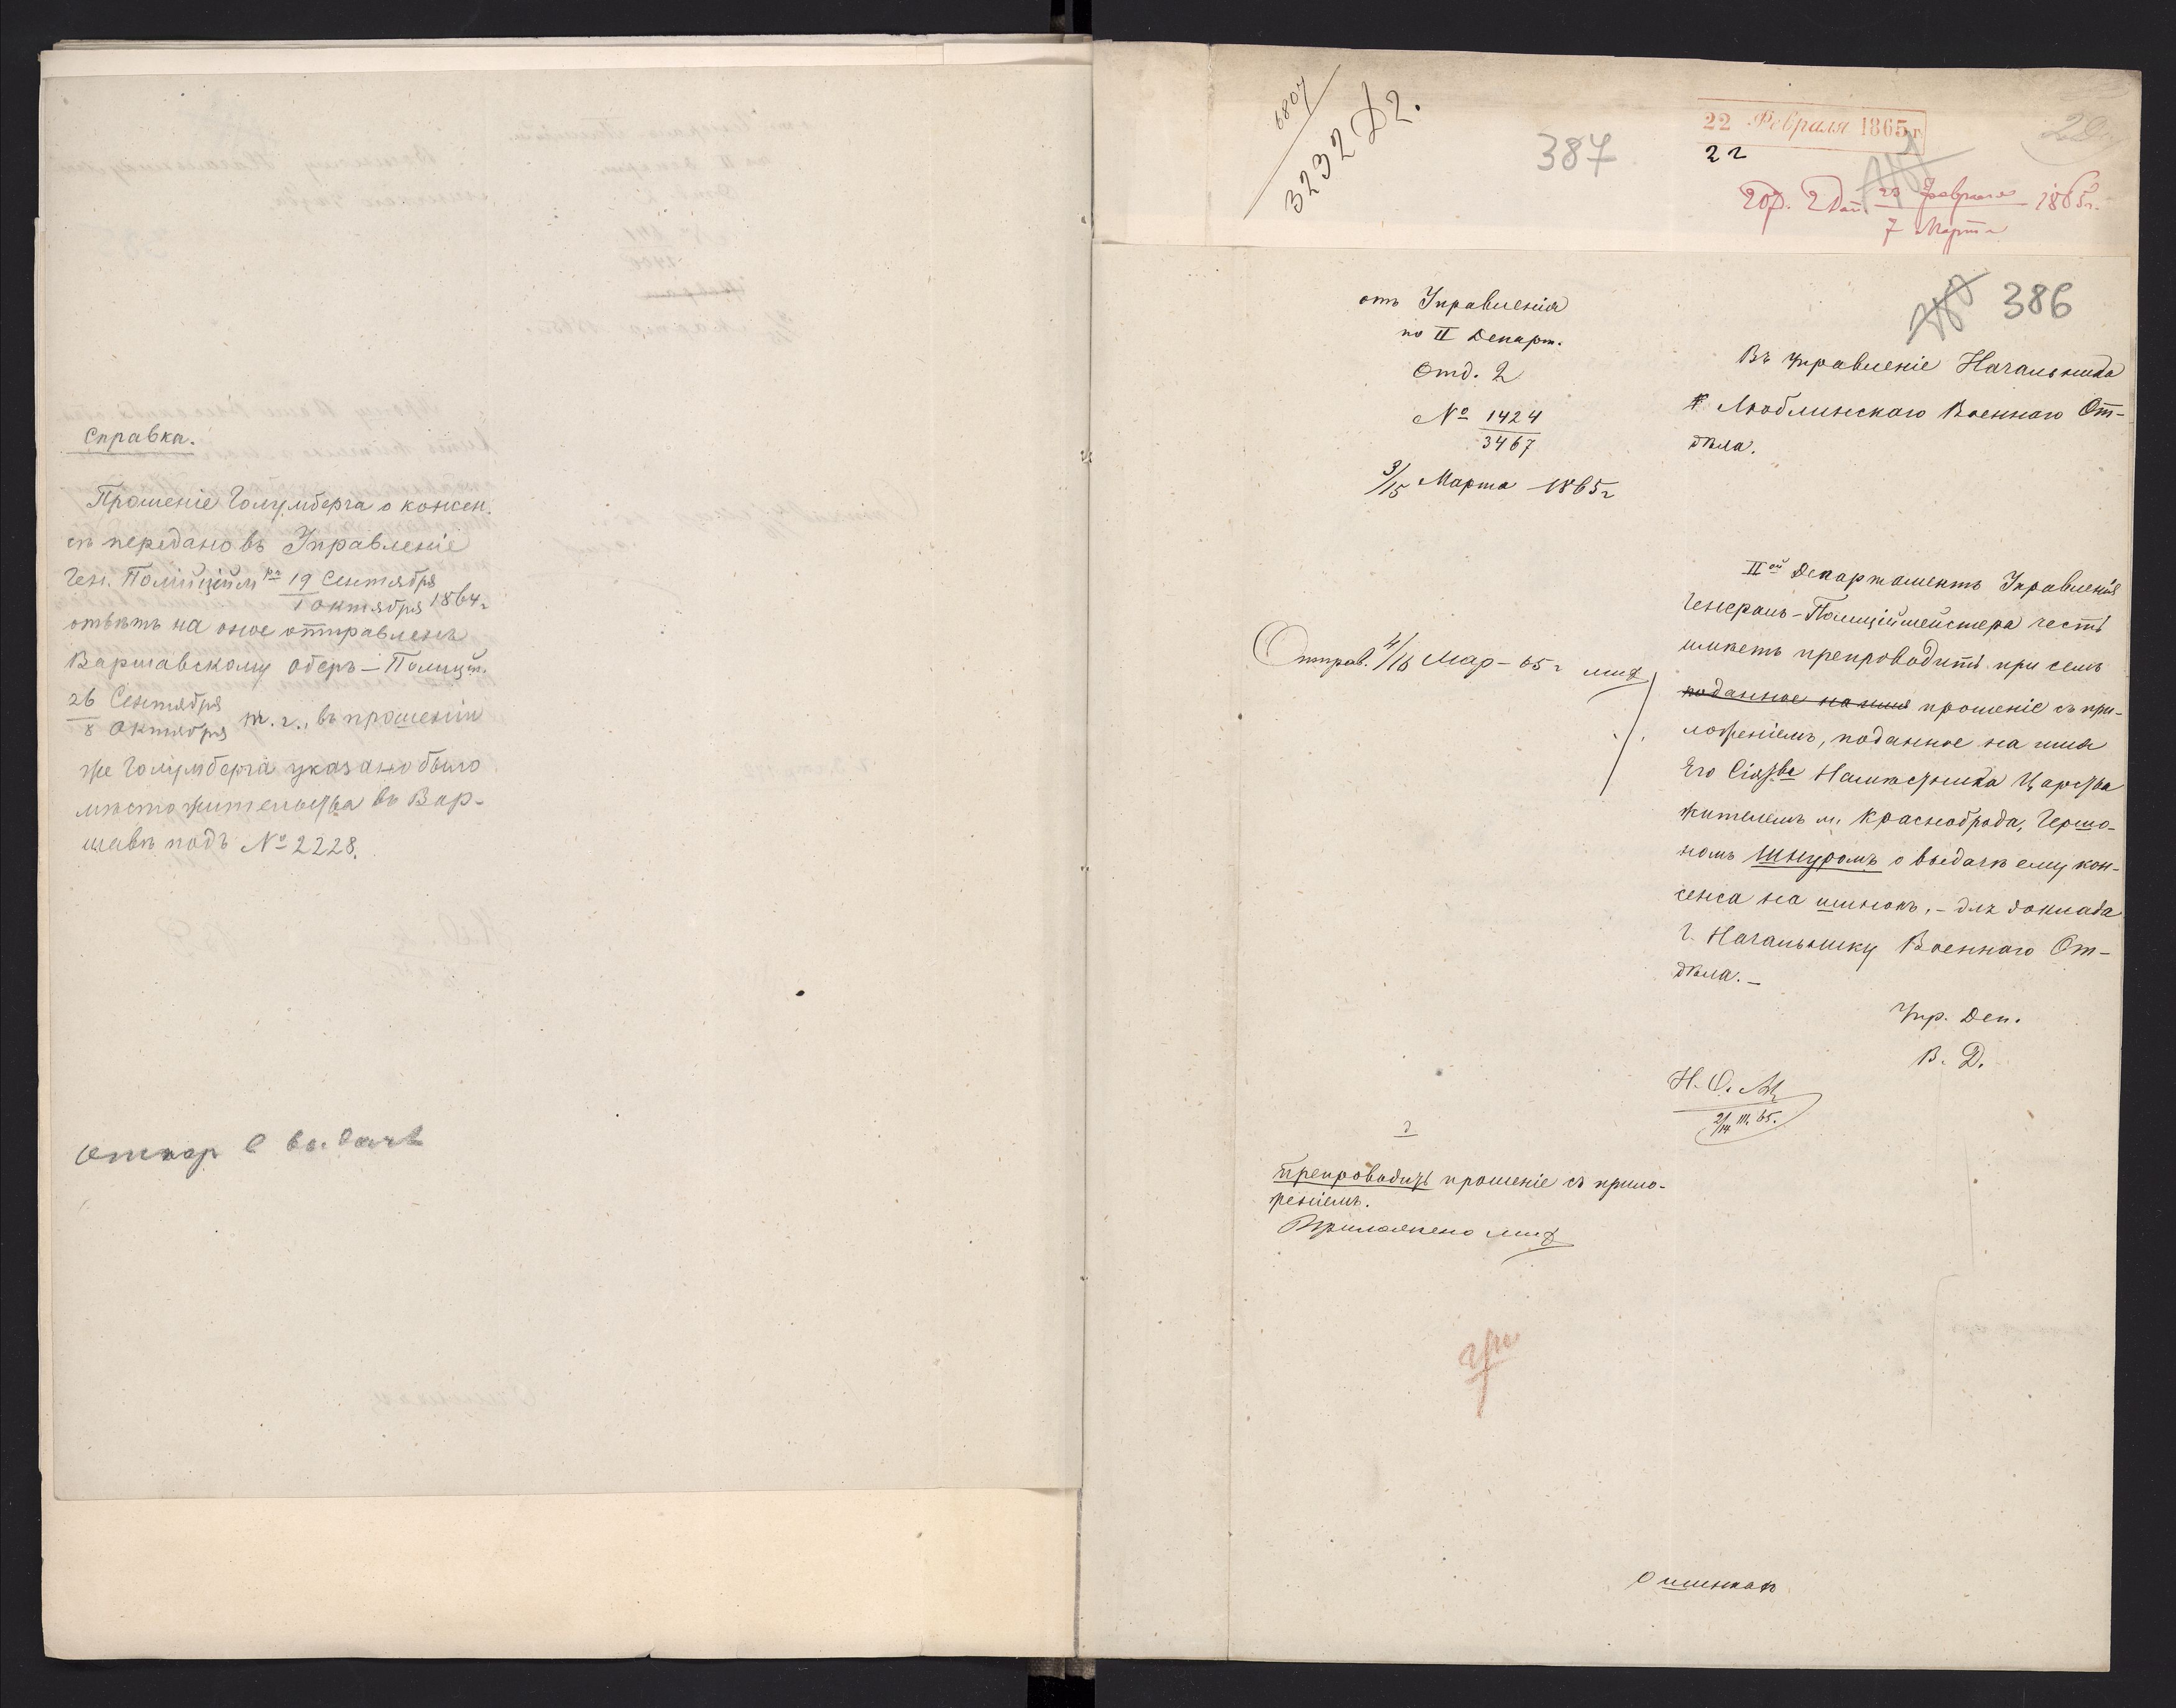 Справка.
Прошеніе Голумберга о консен.
съ передано въ Управленіе
Ген. Полиційм 19 Сентября
1 Октября 1864 г
отвѣтъ на оное отправленъ
Варшавскому Оберъ-Полиц.
26 Сентября
8 Октября т. г., въ прошеніи
же Голумберга указано было
мѣсто жительства въ Вар-
шавѣ подъ № 2228.
о выдачѣ
6807
3232 Д2.
387
22 Февраля 1865 г
22
2 От. 23 Февраля 1865 г.
7 Марта
386
отъ Управленія
по II Департ.
Отд. 2
№ 1424
3467
3/15 Марта 1865 г
Въ Управленіе Начальника
Люблинскаго Военнаго От-
дѣла.
Отправ. 4/16 Мар - 65 г
IIой Департаментъ Управленія
Генералъ-Полиціймейстера честь
имѣетъ препроводить при семъ
поданное на имя прошеніе съ при-
ложеніемъ, поданное на имя
Его Сіятва Намѣстника Царства
жителемъ м. Красноброда, Гершо-
номъ Шнуромъ о выдачѣ ему кон-
сенса на шинокъ, - для доклада
Г. Начальнику Военнаго От-
дѣла. -
Упр. Деп.
В. Д.
Н. О.
2/14 III. 65.
Препроводить прошеніе съ прило-
женіемъ.
Приложено
О шинкахъ